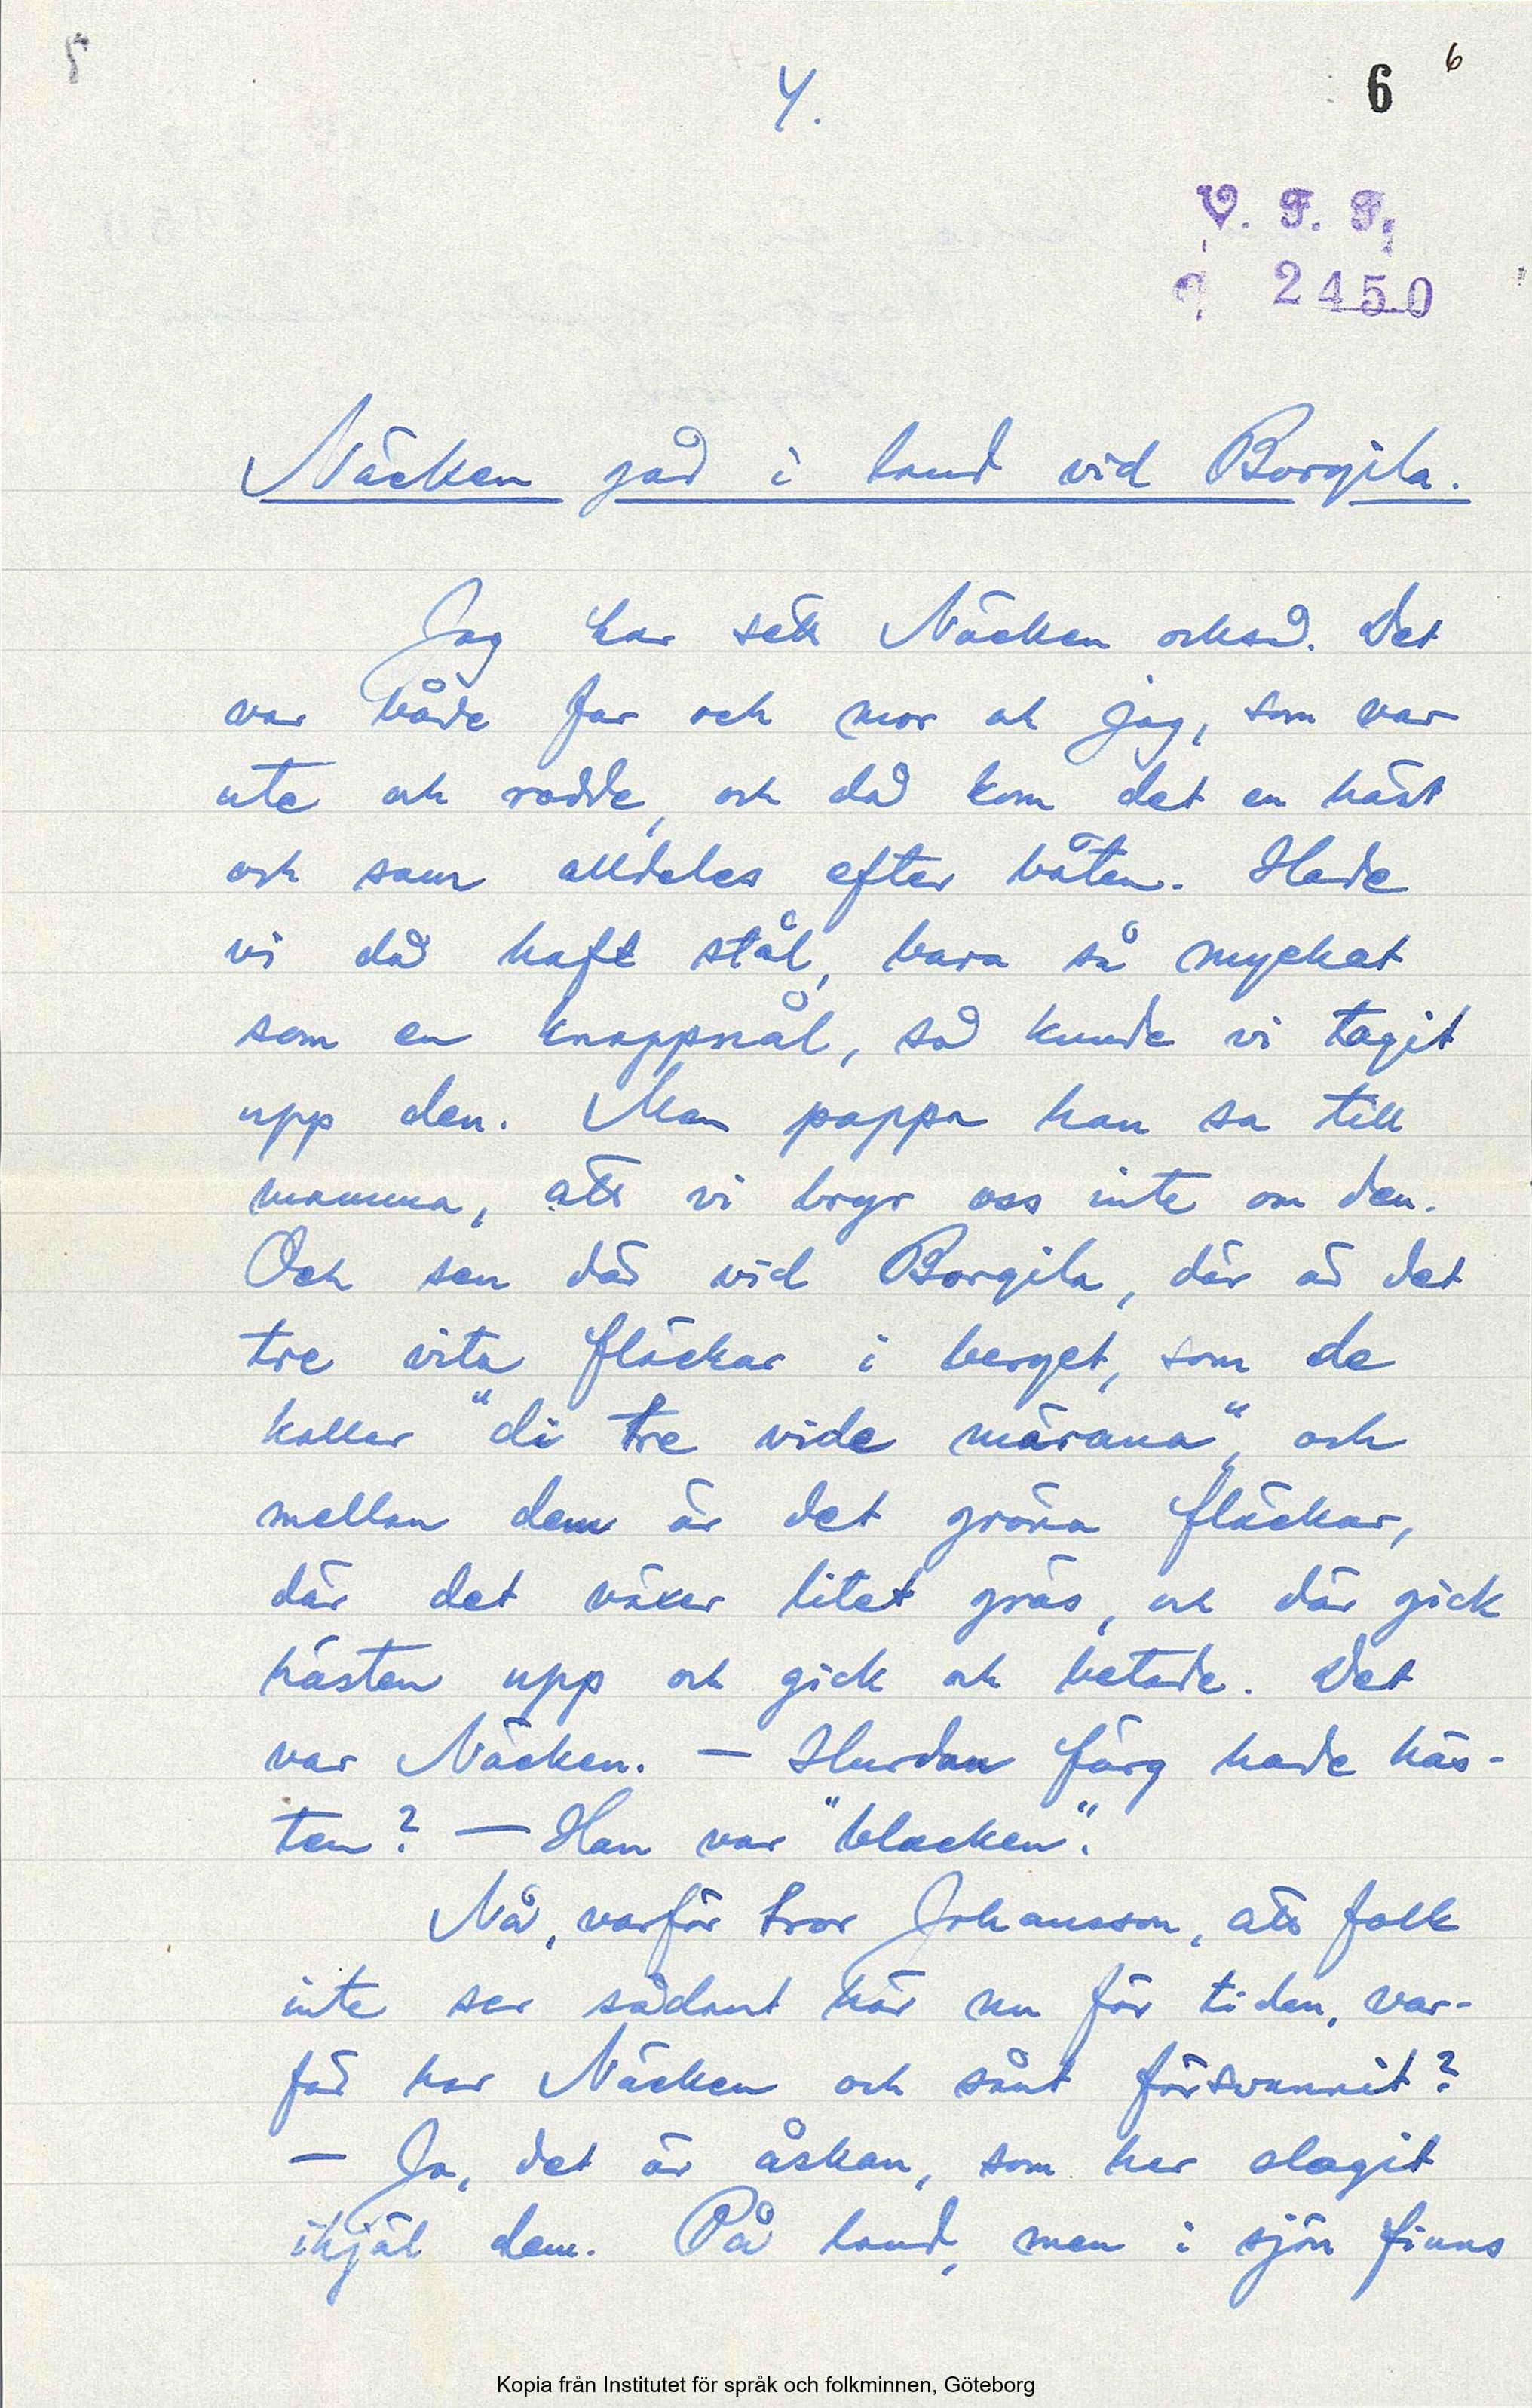 4.
6 6
V. F. F.
2450
Näcken går i land vid Borgila.
Jag har sett Näcken också. Det
var både far och mor och jag, som var
ute och rodde, och då kom det en häst
och sam alldeles efter båten. Hade
vi då haft stål, bara så mycket
som en knappnål, så kunde vi tagit
upp den. Men pappa han sa till
mamma, att vi bryr oss inte om den.
Och sen där vid Borgila, där är det
tre vita fläckar i berget, som de
kallar "di tre vide märana", och
mellan dem är det gröna fläckar,
där det växer litet gräs, och där gick
hästen upp och gick och betade. Det
var Näcken. — Hurdan färg hade häs-
ten? — Han var "blacken".
Nå, varför tror Johansson, att folk
inte ser sådant här nu för tiden, var-
för har Näcken och sånt försvunnit?
— Ja, det är åskan, som har slagit
ihjäl dem. På land, men i sjön finns
Kopia från Institutet för språk och folkminnen, Göteborg